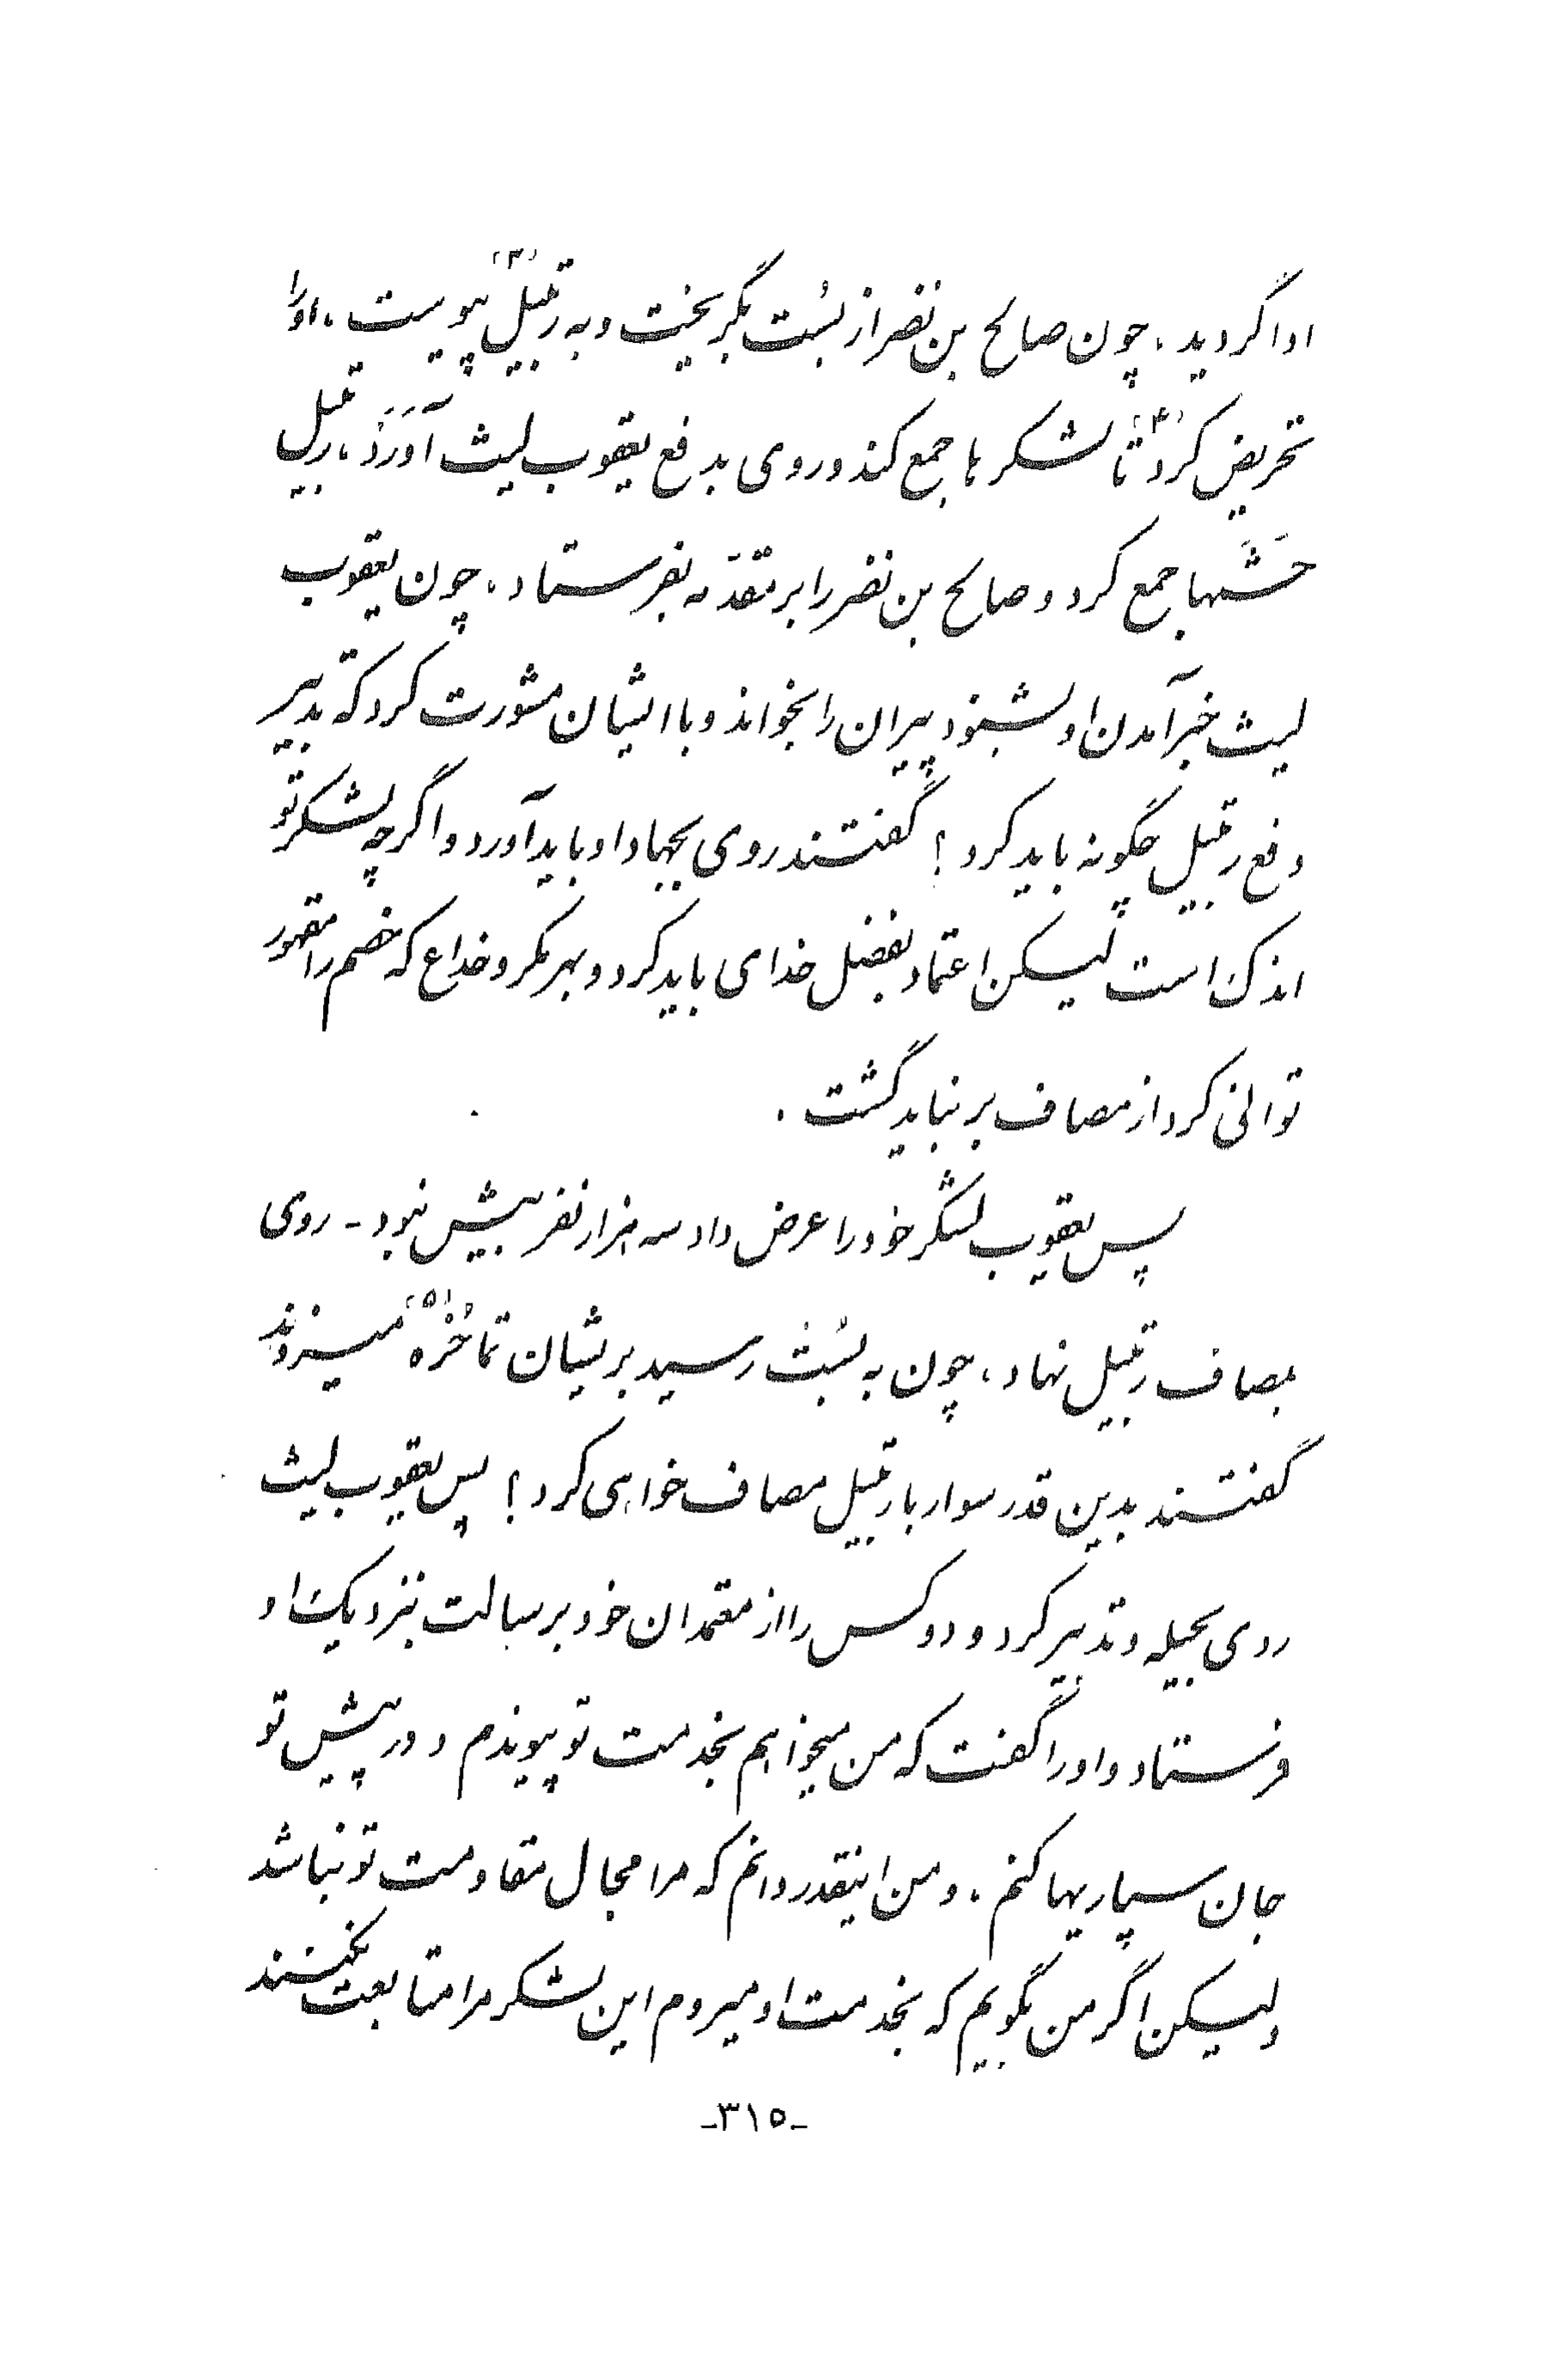 ادا گردید، چون صالح بن نضر از بُست بگریخت و به رتبیل(۳) پیوست، او را
تحریض کرد(۴) تا لشکرها جمع کند و روی بدفع یعقوب لیث آوَرَد، رتبیل
حَشَمها جمع کرد و صالح بن نضر را بر مقدّمه بفرستاد، چون یعقوب
لیث خبر آمدن او بشنود پیران را بخواند و با ایشان مشورت کرد که تدبیر
دفع رتبیل چگونه باید کرد؟ گفتند روی بجهاد او باید آورد و اگرچه لشکر تو
اندک است لیکن اعتماد بفضل خدای باید کرد و بهر مکر و خداع که خصم را مقهور
توانی کرد از مصاف برنباید گشت.
پس یعقوب لشکر خود را عرض داد سه هزار نفر بیش نبود - روی
بمصاف رتبیل نهاد، چون به بُست رسید بریشان تماخُرْه(۵) میزدند
گفتند بدین قدر سوار با رتبیل مصاف خواهی کرد؟ پس یعقوب لیث
روی بحیله و تدبیر کرد و دو کس را از معتمدان خود برسالت بنزدیک او
فرستاد و او را گفت که من میخواهم بخدمت تو پیوندم و در پیش تو
جان سپاریها کنم، و من اینقدر دانم که مرا مجال مقاومت تو نباشد
ولیکن اگر من بگویم که بخدمت او میروم این لشکر مرا متابعت نکنند
-۳۱۵-